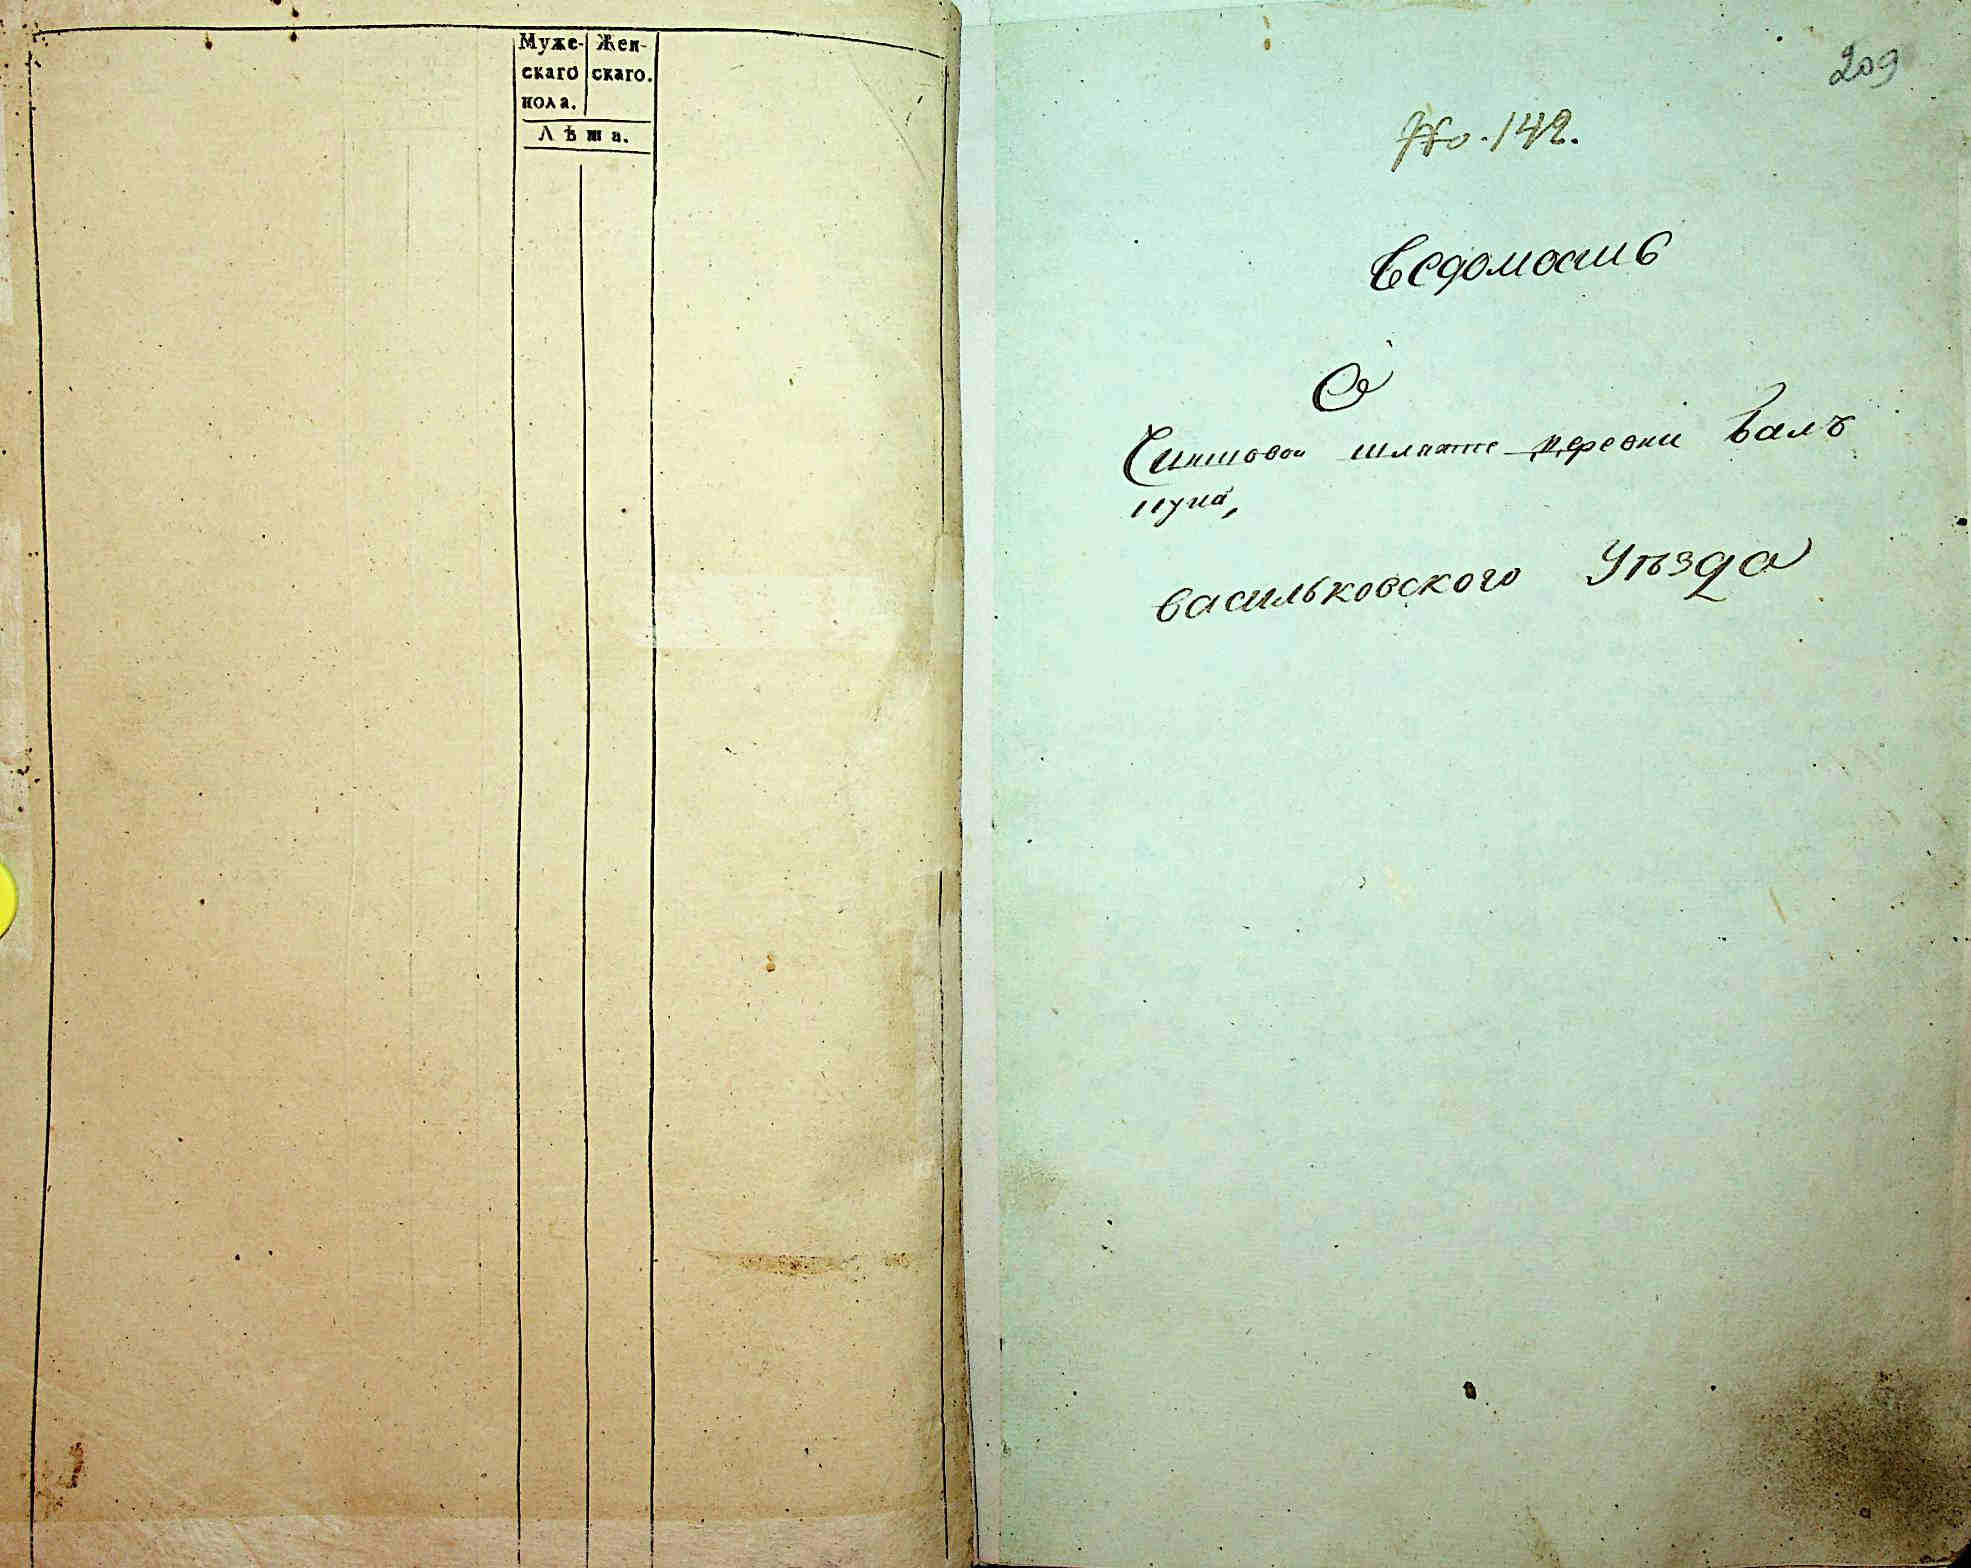 Муже- Жен-
скаго скаго.
пола.
Лѣта.
209
No. 142.
Ведомость
О
Чиншовой шляхте деревни Валъ
пуна,
васильковского Уѣзда